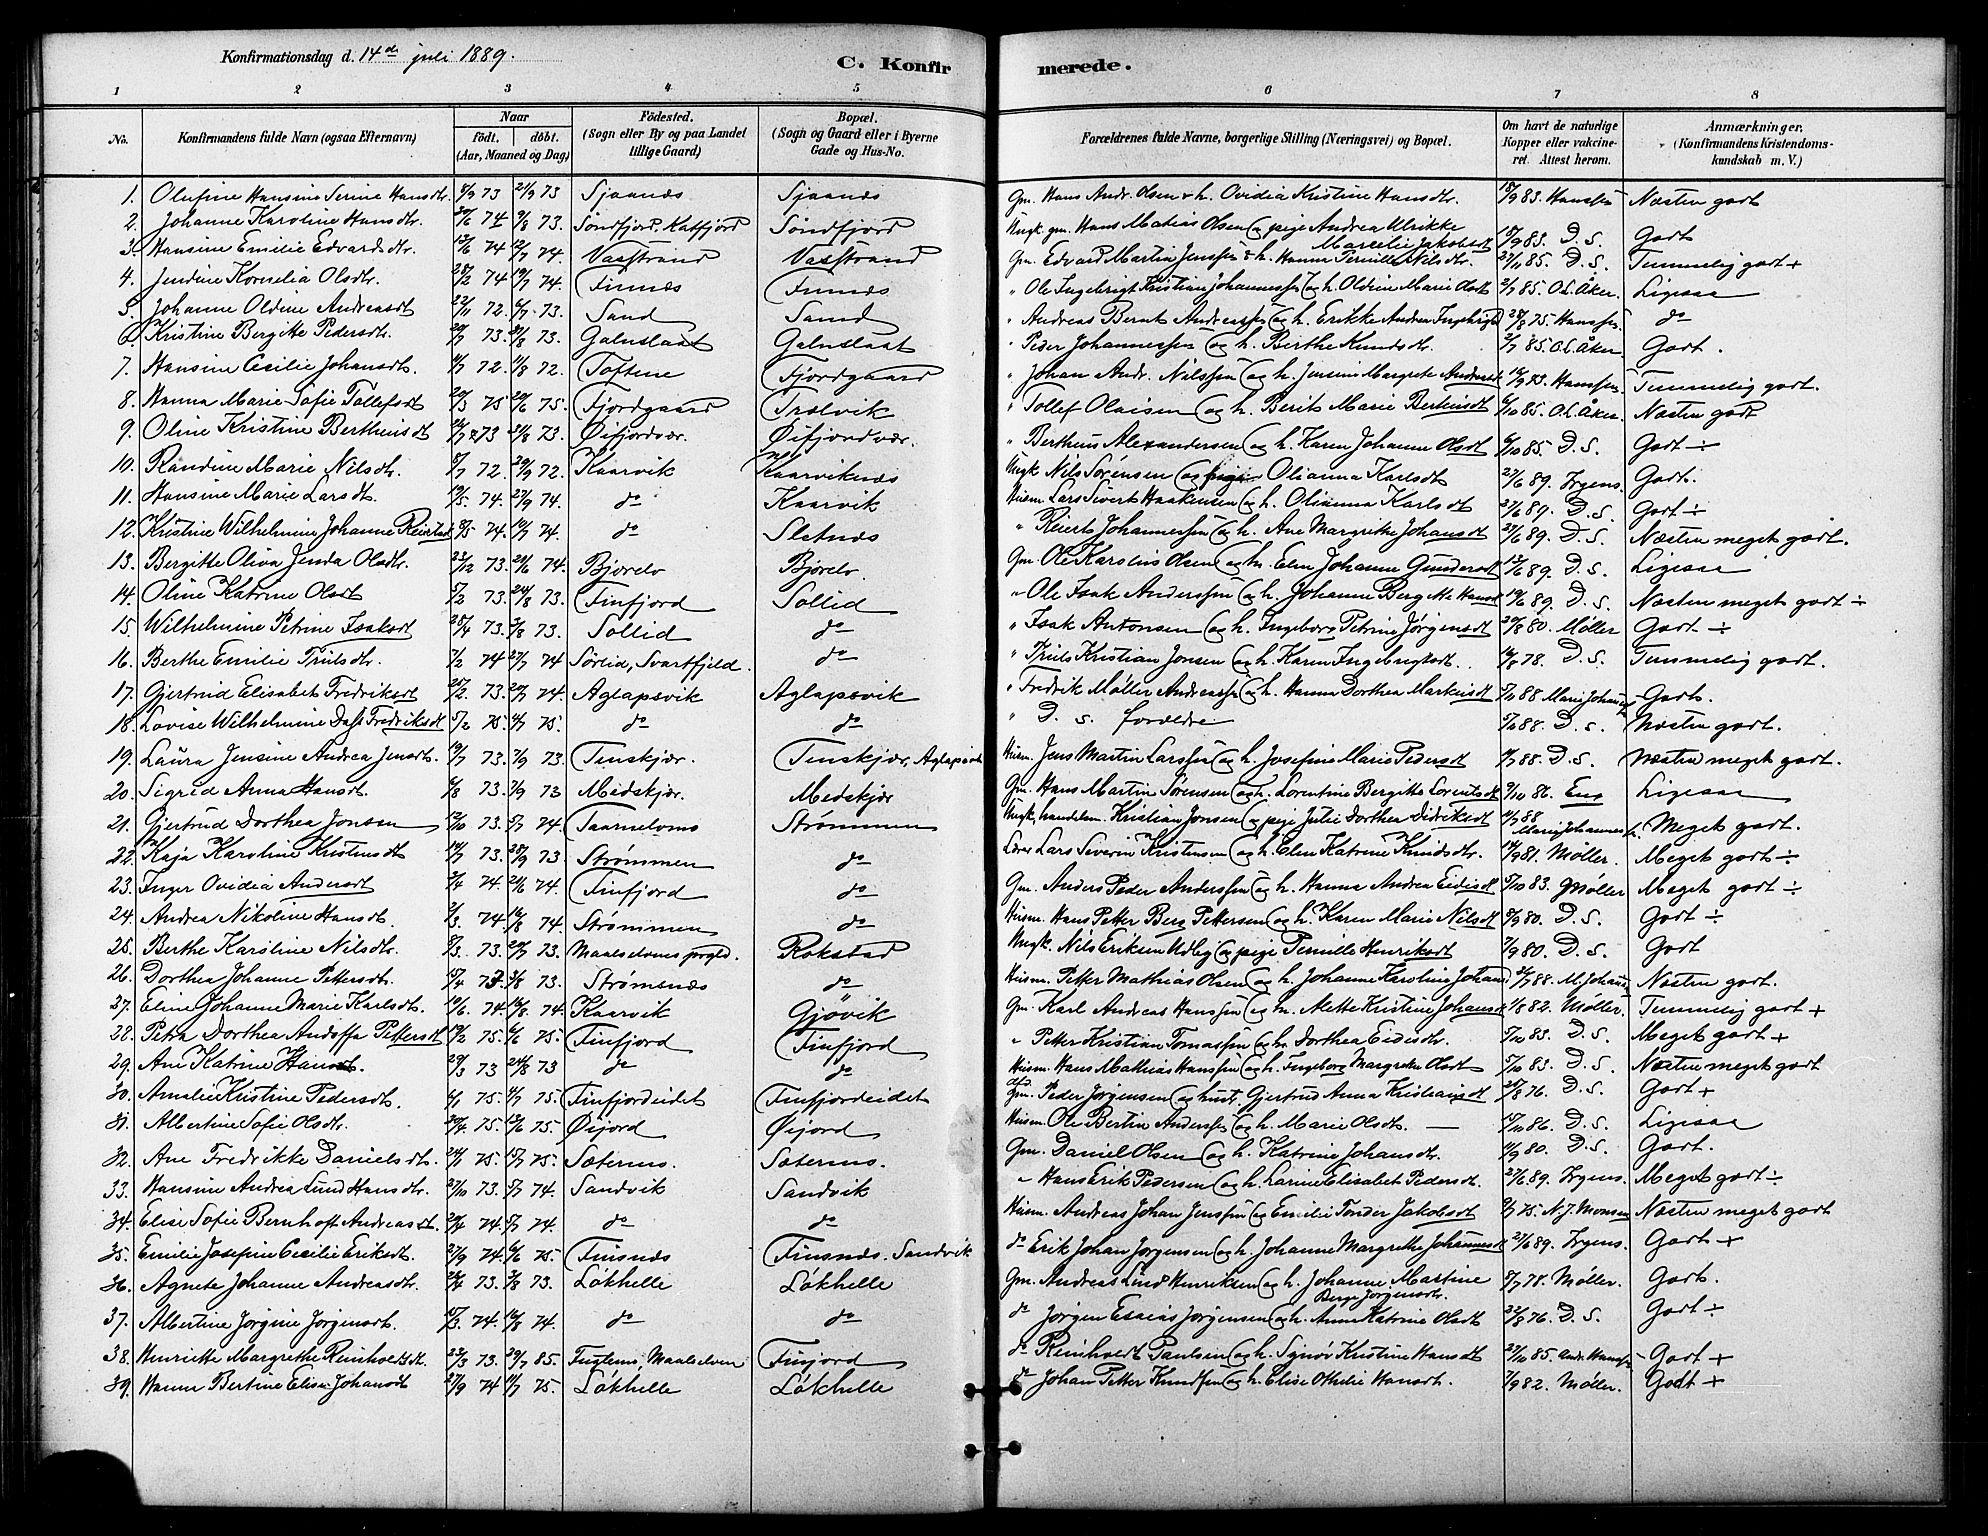 Konfirmationsdag d. 14de juli 1889.
C. Konfirmerede.
1 2 3 4 5 6 7 8
No. Konfirmandens fulde Navn (ogsaa Efternavn) Naar födt. döbt. (Aar, Maaned og Dag) Födested. (Sogn eller By og paa Landet tillige Gaard) Bopæl. (Sogn og Gaard eller i Byerne Gade og Hus-No. Forældrenes fulde Navne, borgerlige Stilling (Næringsvei) og Bopæl. Om havt de naturlige Kopper eller vakcineret. Attest herom. Anmærkninger. (Konfirmandens Kristendomskundskab m. V.)
1. Olufine Hansine Serine Hansdtr. 8/9 73 21/9 73 Sjaanæs Sjaanæs Gm. Hans Andr. Olsen & h. Ovidia Kristine Hansdtr. 18/9 83. Hanssen Næsten godt
2. Johanne Karoline Hansdtr. 74 73. Søndfjord, Katfjord Søndfjord Ungk. gm. Hans Matias Olsen og pige Andrea Ulrikke Marcelie Jakobsdt 18/9 83. D. S. Godt
3. Hansine Emilie Edvardsdtr. 13/6 74 12/7 74. Vasstrand Vasstrand Gm. Edvard Martin Jenssen & h. Hanna Pernille Nilsdtr. 23/11 85. D. S. Temmelig godt +
4. Jendine Kornelia Olsdtr. 28/2 74 19/7 74. Finnæs Finnæs " Ole Ingebrigt Kristian Johannessen og h. Oldine Marie Olsdt 2/7 85. O.L. Åker. Ligesaa
5. Johanne Oldine Andreasdt 22/11 72 6/7 73 Sand Sand " Andreas Bernt Andreassen og h. Erikke Andrea Ingebrigtsd 28/8 75. Hanssen do
6. Kristine Bergitte Pedersdt. 29/7 73. 31/8 73. Galnslaat Galnslaat " Peder Johannessen og h. Berthe Knudsdtr. 2/7 85. O.L. Åker Godt.
7. Hansine Cecilie Johansdt. 72 11/8 72. Toftene Fjordgaard " Johan Andr. Nilssen og h. Jensine Margrete Andersdt 16/9 73. Hanssen Temmelig godt.
8. Hanna Marie Sofie Tollefsdt 20/3 75 20/6 75. Fjordgaard Trolvik " Tollef Olaisen og h. Berit Marie Bertheusdt 6/10 85. O.L. Åker Næsten godt
9. Oline Kristine Bertheusdt 73 31/8 73. Øifjordvær. Øifjordvær. " Bertheus Alexandersen og h. Karen Johanne Olsdt 6/10 85. D. S. Godt ÷
10. Randine Marie Nilsdtr. 8/7 72. 29/9 72. Kaarvik Kaarviknæs Ungk. Nils Sørensen og pige Olianna Karlsdt 22/6 89. Irgens. Godt.
11. Hansine Marie Larsdt. 19/5 74. 27/9 74. do Kaarvik Husm. Lars Sivert Haakensen og h. Olianna Karlsdt 22/6 89. D. S. Godt ÷
12. Kristine Wilhelmine Johanne Reiertsd 74. 74. do Sletnæs " Reiert Johannessen og h. Ane Margrethe Johansdt 22/6 89. D. S. Næsten meget godt.
13. Bergitte Oliva Jenda Olsdtr. 23/12 73. 24/6 74. Bjørelv Bjørelv. Gm. Ole Karolius Olsen og h. Elen Johanne Gundersdt 12/6 89. D. S. Ligesaa
14. Oline Katrine Olsdt 5/2 73. 24/8 73. Finfjord Sollid " Ole Isak Anderssen og h. Johanne Bergitte Hansd 19/6 89. D. S. Næsten meget godt ÷
15. Wilhelmine Petrine Isaksdt 28/4 73. 3/8 73. Sollid do " Isak Antonsen og h. Ingeborg Petrine Jørgensdt 29/8 80. Møller Godt ÷
16. Berthe Emilie Trulsdtr. 7/2 74 27/7 74 Sørlid, Svartfjeld. do " Truls Kristian Jonsen og h. Karen Ingebrigtsdt. 78. D. S. Temmelig godt.
17. Gjertrud Elisabet Fredriksdt 25/2 73. 74. Aglapsvik Aglapsvik " Fredrik Møller Andreassen og h. Hanna Dorthea Markusdt 5/11 88 Marie Johans Godt.
18. Lovise Wilhelmine Dass Fredriksdt 5/2 75. 4/7 75. do do " D. s. forældre 5/2 88. D. s. Næsten godt.
19. Laura Jensine Andrea Jensdt. 19/7 73. 7/9 73. Tenskjær. Tenskjær, Aglapsvik Husm. Jens Martin Larssen og h. Josefine Marie Pedersdt 88. D. S. Næsten meget godt.
20. Sigrid Anna Hansdt. 6/8 73. 7/9 73 Medskjær. Medskjær Gm. Hans Martin Sørensen og h. Lorentine Bergitte Lorentsdt 9/10 86. Eng Ligesaa
21. Gjertrud Dorthea Jonsen 12/10 73. 5/7 74. Taarnelvmo Strømmen Ungk, handelsm. Kristian Jonsen & pige Julie Dorthea Didriksdt 88 Marie Johannes Meget godt.
22. Kaja Karoline Kristensdt 14/7 73. 28/9 73 Strømmen do Lærer Lars Severin Kristensen og h. Elen Katrine Knudsdtr. 14/9 81. Møller. Meget godt ÷
23. Inger Ovidia Andersdt 3/4 74. 21/6 74. Finfjord do Gm. Anders Peder Anderssen og h. Hanna Andrea Eidisdt 5/10 83. Møller Meget godt ÷
24. Andrea Nikoline Hansdt. 2/3 74 16/8 74. Strømmen do Husm. Hans Petter Berg Pettersen og h. Karen Marie Nilsdt 8/9 80. D. S. Godt ÷
25. Berthe Karoline Nilsdtr. 8/3 73. 20/7 73. Maalselvens prgld. Rokstad Ungk. Nils Eriksen Udby og pige Pernille Henriksdt 7/9 80. D. S. Godt
26. Dorthea Johanne Pettersdt. 15/4 73. 3/8 73. Strømsnæs do Husm. Petter Mathias Olsen og h. Johanne Karoline Johand 88. M. Johans Næsten godt.
27. Eline Johanne Marie Karlsdt. 19/6 74. 16/8 74. Kaarvik Gjøvik Gm. Karl Andreas Hanssen og h. Mette Kristine Johansdt 82. Møller. Temmelig godt +
28. Petra Dorthea Andoffa Pettersdt 14/2 75. 6/6 75. Finfjord Finfjord " Petter Kristian Tomassen og h. Dorthea Eidisdtr. 5/10 83. D. S. Meget godt +
29. Ane Katrine Hansdt. 29/3 73 24/8 73 do do Husm. Hans Mathias Hanssen og h. Ingeborg Margrethe Olsdt 5/10 83. D. S. Næsten meget godt
30. Amalie Kristine Pedersdt. 6/1 75. 4/7 75. Finfjordeidet Finfjordeidet Gm. Peder Jørgensen og hust. Gjertrud Anna Kristiansdt 28/8 76. D. S. Godt +
31. Albertine Sofie Olsdtr. 20/4 75. 13/6 75 Øijord Øijord Husm. Ole Bertin Anderssen og h. Marie Olsdtr. — 18/10 86. D. S. Ligesaa
32. Ane Fredrikke Danielsdt. 24/1 75. 15/7 75. Sætermo. Sætermo. Gm. Daniel Olsen og h. Katrine Johansdtr. 80. D. S. Godt.
33. Hansine Andrea Lund Hansdtr. 27/10 73. 5/7 74. Sandvik Sandvik " Hans Erik Pedersen og h. Larine Elisabet Pedersdt. 27/6 89. Irgens. Meget godt ÷
34. Elise Sofie Bernhoft Andreasdt 74. 5/7 74. do do Husm. Andreas Johan Jenssen og Emilie Tønder Jakobsdt 75. N. J. Monsen Næsten meget godt
35. Emilie Josefine Cecilie Eriksdt. 27/9 74. 6/6 75. Finsnæs Finsnæs. Sandvik do Erik Johan Jørgensen og h. Johanne Margrethe Johannesdt 21/6 89. Irgens. Godt +
36. Agnete Johanne Andreasdt. 73. 3/8 73. Løkhelle Løkhelle Gm. Andreas Lind Henriksen og h. Johanne Martine Berge Jørgensdt. 8/7 78. Møller. Godt.
37. Albertine Jørgine Jørgensdt. 15/3 74. 16/8 74. do do do Jørgen Esaias Jørgensen og h. Anne Katrine Olsdt 22/8 76. D. S. Godt ÷
38. Henriette Margrethe Reinholdtsdt. 23/3 73. 29/7 85. Fuglemo, Maalselven Finjord do Reinholdt Paulsen og h. Synøv Kristine Hansdt 27/10 85. Andr. Hanssen Godt +
39. Hanna Bertine Elise Johansdt 27/9 74 11/7 75. Løkhelle Løkhelle do Johan Petter Knudsen og h. Elise Othelie Hansdt. 7/9 82. Møller. Godt +